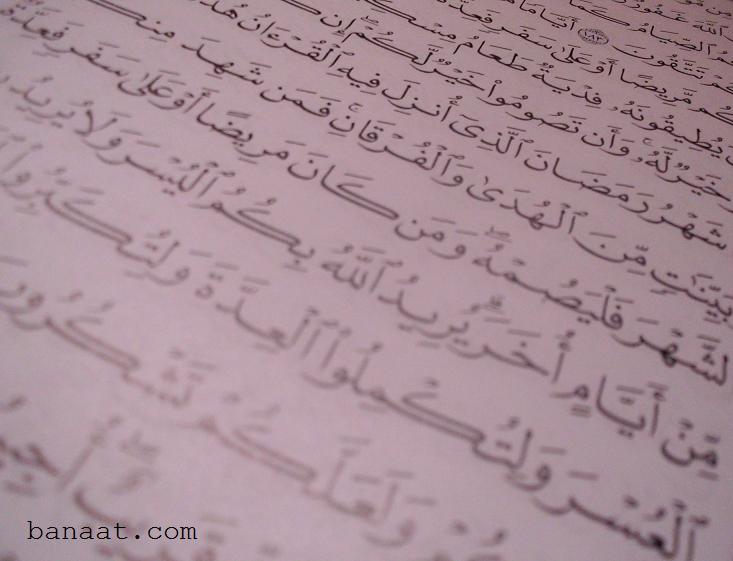 ٱللَّهَ غَفُورٌ
ٱلصِّيَامُ كَمَا
تَتَّقُونَ ١٨٣ أَيَّامًا
مَّرِيضًا أَوْ عَلَىٰ سَفَرٍ فَعِدَّةٌ
يُطِيقُونَهُۥ فِدْيَةٌ طَعَامُ
خَيْرٌ لَّهُۥ وَأَن تَصُومُوا۟ خَيْرٌ لَّكُمْ إِن
شَهْرُ رَمَضَانَ ٱلَّذِىٓ أُنزِلَ فِيهِ ٱلْقُرْءَانُ
بَيِّنَٰتٍ مِّنَ ٱلْهُدَىٰ وَٱلْفُرْقَانِ ۚ فَمَن شَهِدَ
لشَّهْرَ فَلْيَصُمْهُ ۖ وَمَن كَانَ مَرِيضًا أَوْ عَلَىٰ سَفَرٍ فَعِدَّةٌ
مِّنْ أَيَّامٍ أُخَرَ ۗ يُرِيدُ ٱللَّهُ بِكُمُ ٱلْيُسْرَ وَلَا يُرِيدُ
ٱلْعُسْرَ وَلِتُكْمِلُوا۟ ٱلْعِدَّةَ وَلِتُكَبِّرُوا۟
وَلَعَلَّكُمْ تَشْكُرُونَ
قَرِيبٌ ۖ
banaat.com